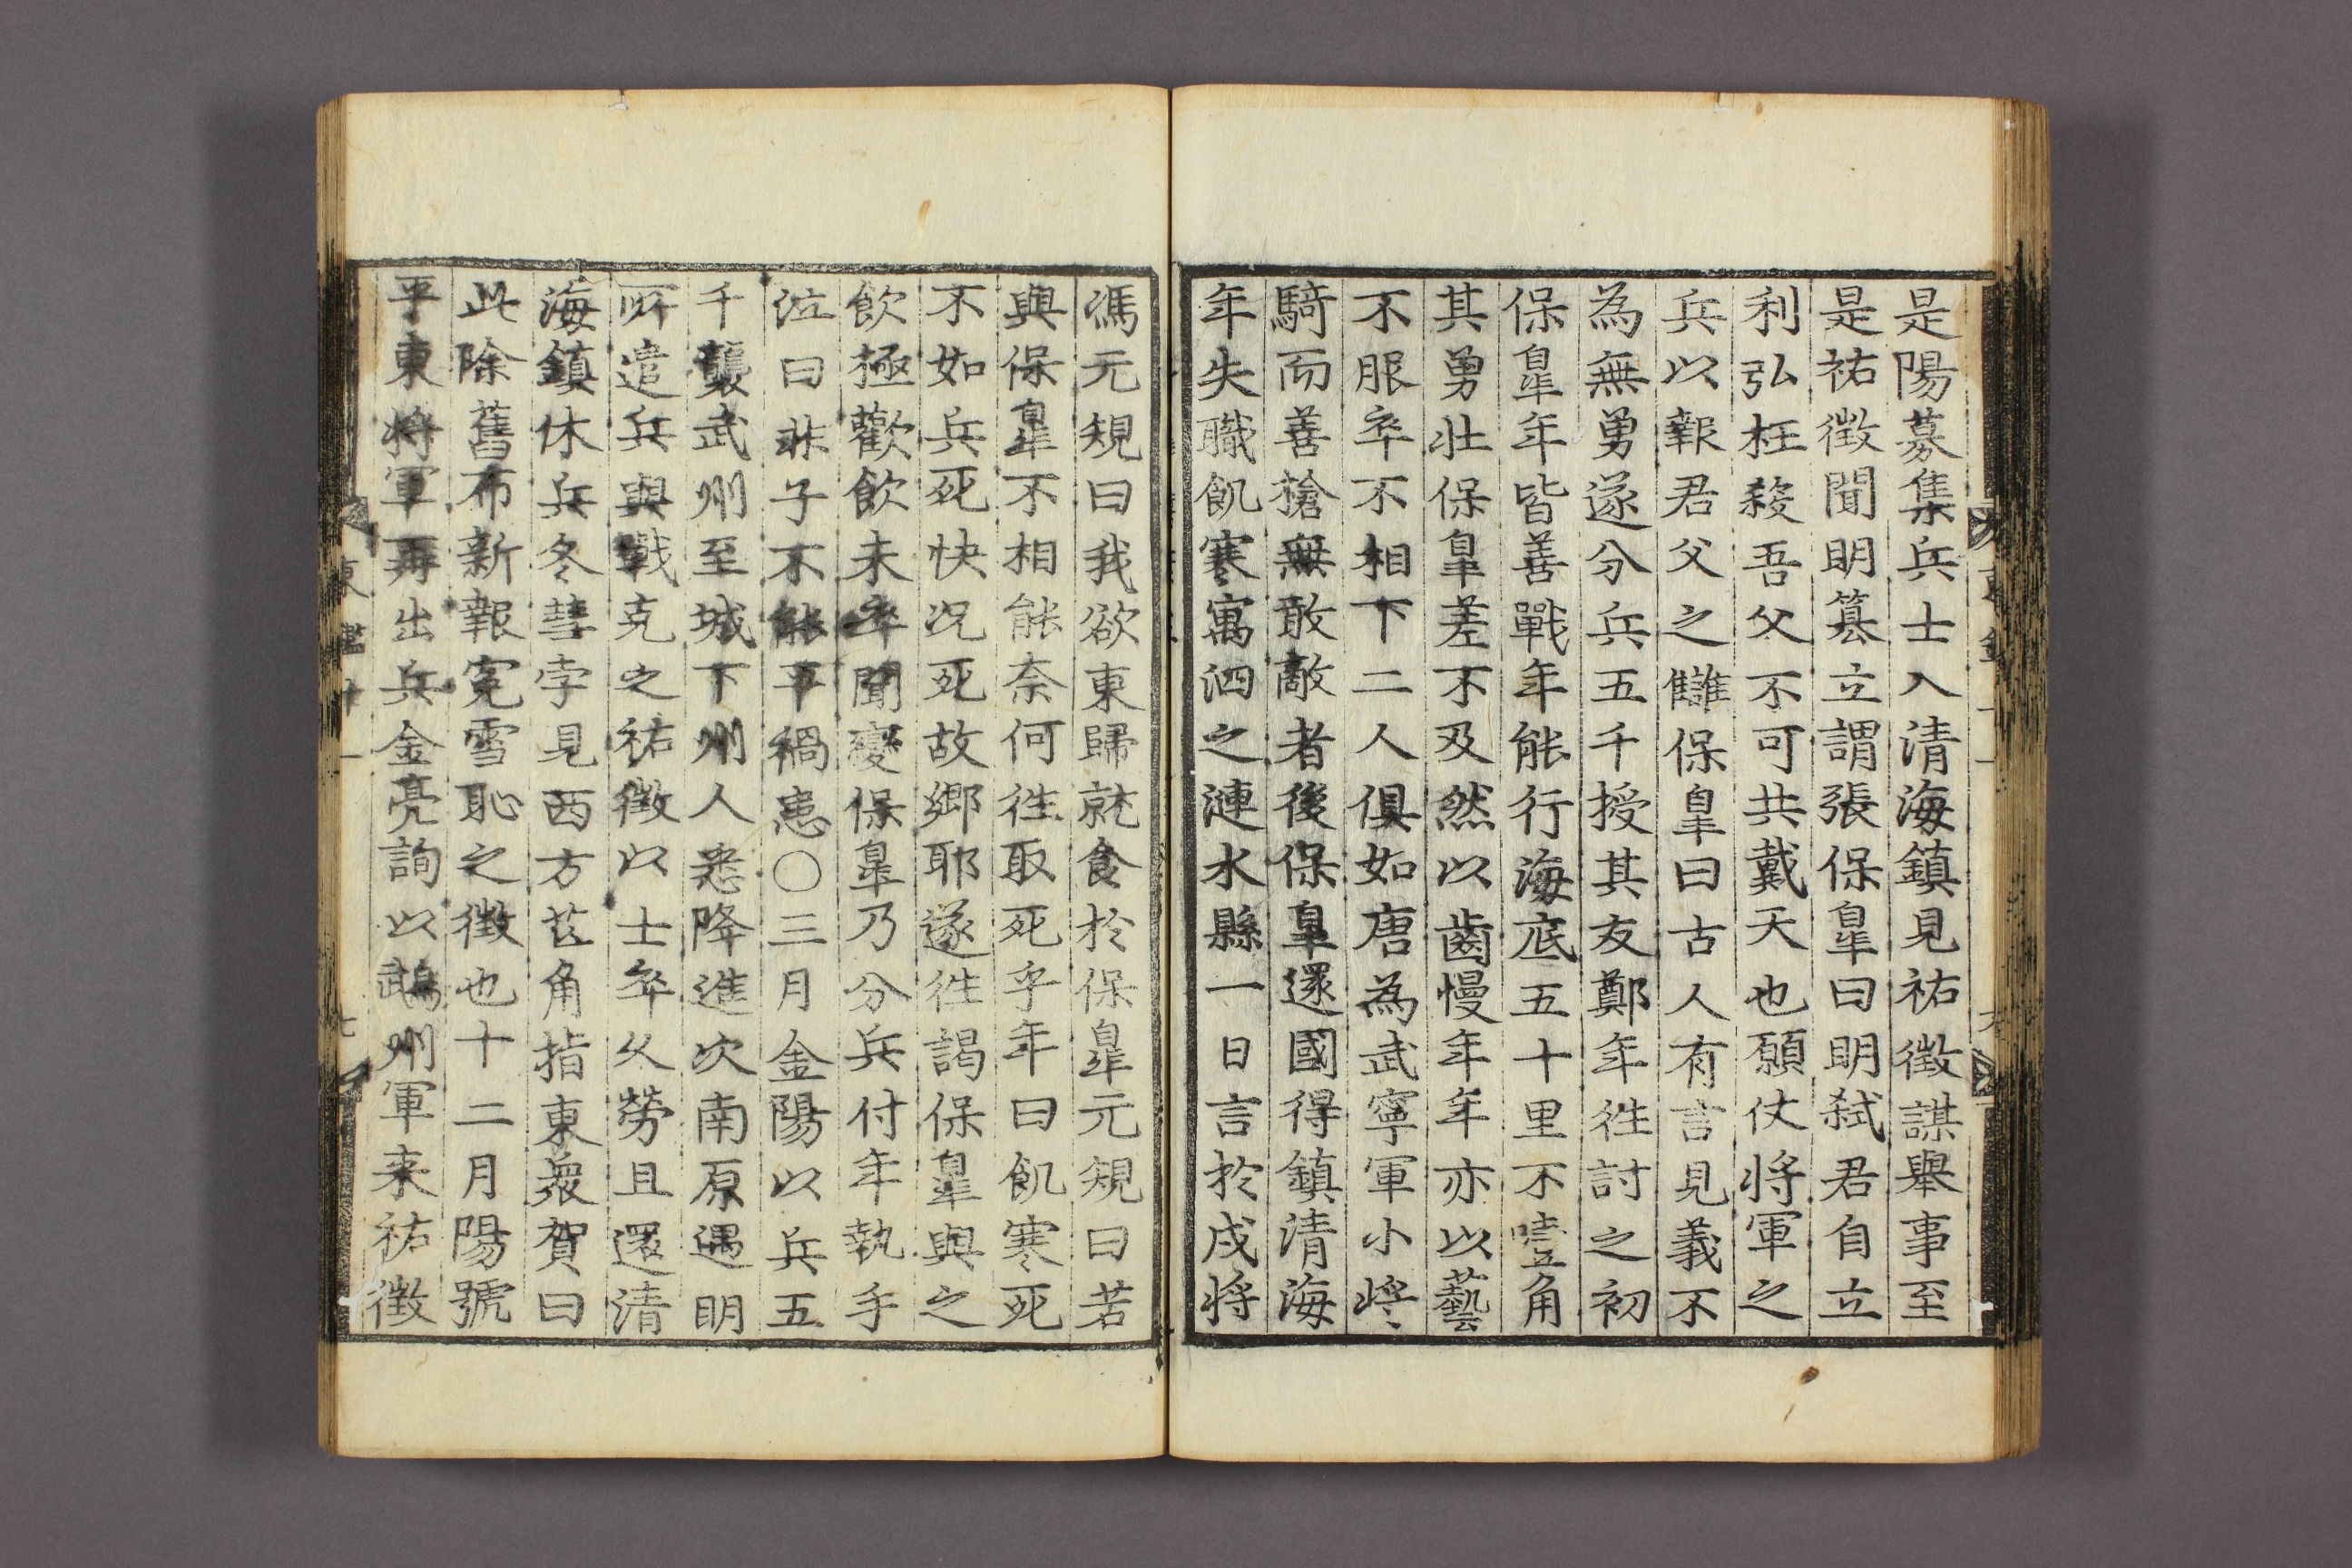 是陽募集兵士入清海鎮見祐徵謀舉事至
是祐徵聞明簒立謂張保皐曰明弑君自立
利弘枉殺吾父不可共戴天也願仗將軍之
兵以報君父之讎保皐曰古人有言見義不
為無勇遂分兵五千授其友鄭年徃討之初
保皐年皆善戰年能行海底五十里不噎角
其勇壯保皐差不及然以齒慢年年亦以藝
不服卒不相下二人俱如唐為武寧軍小將
騎而善槍無敢敵者後保皐還國得鎮清海
年失職飢寒寓泗之漣水縣一日言於戍將
馮元規曰我欲東歸就食於保皐元規曰若
與保皐不相能奈何徃取死乎年曰飢寒死
不如兵死快况死故鄉耶遂徃謁保皐與之
飲極歡飲未卒聞變保皐乃分兵付年執手
泣曰非子不能平禍患〇三月金陽以兵五
千襲武州至城下州人悉降進次南原遇明
所遣兵與戰克之祐徵以士卒久勞且還清
海鎮休兵冬彗孛見西方芒角指東衆賀曰
此除舊布新報寃雪恥之徵也十二月陽號
平東將軍再出兵金亮詢以鵡州軍来祐徵
東鑑十一
七